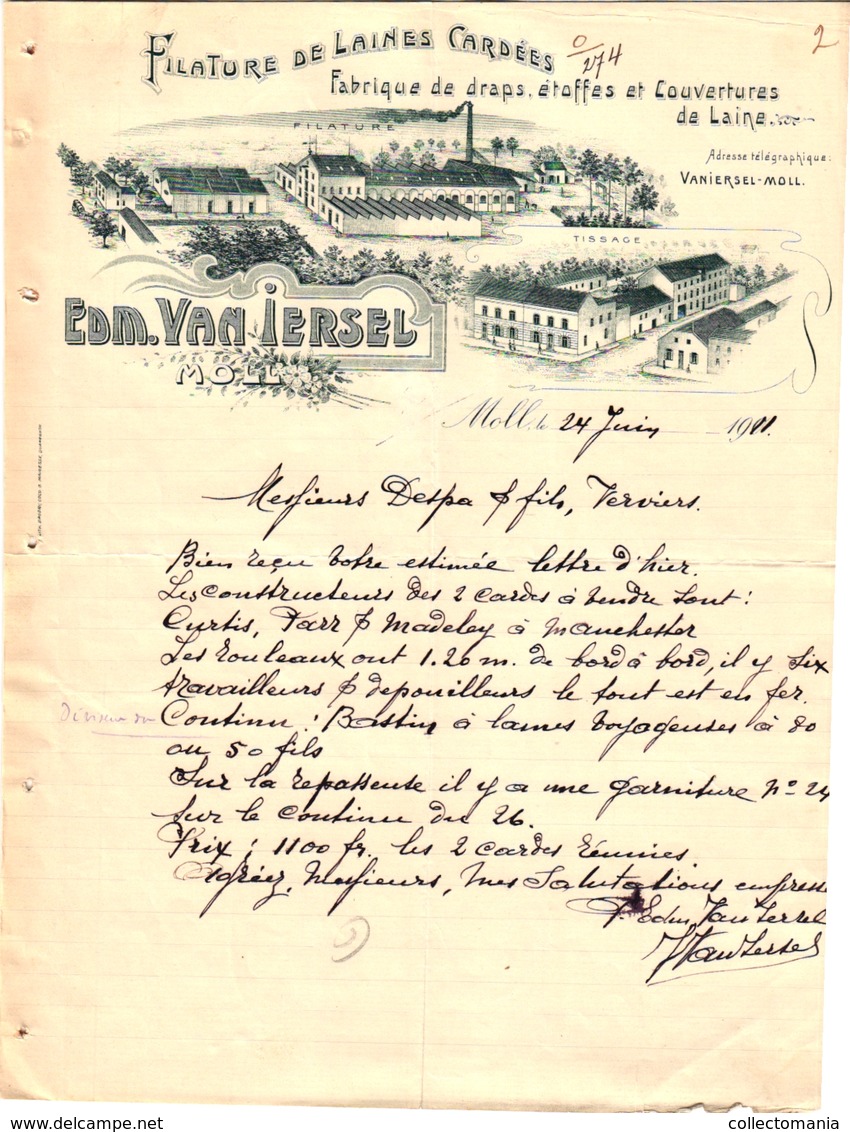 FILATURE DE LAINES CARDÉES
0/274
2
Fabrique de draps, étoffes et Couvertures
de Laine.
FILATURE
Adresse télégraphique:
VANIERSEL-MOLL.
TISSAGE
EDM. VAN IERSEL
MOLL
Moll, le 24 Juin 1911.
Messieurs Despa & fils, Verviers.
Bien reçu votre estimée lettre d'hier.
Les constructeurs des 2 cardes à vendre sont:
Curtis, Parr & Madeley à Manchester
Les rouleaux ont 1.20 m. de bord à bord, il y six
travailleurs & depouilleurs le tout est en fer.
Diviseur ou
Continu: Bastin à lames voyageuses à 80
ou 50 fils
Sur la repasseuse il y a une garniture No 24
sur le continu du 26.
Prix: 1100 fr. les 2 cardes réunies.
Agréez, Messieurs, mes Salutations empresse
P. Edm. Van Iersel
VanIersel
delcampe.net
collectomania